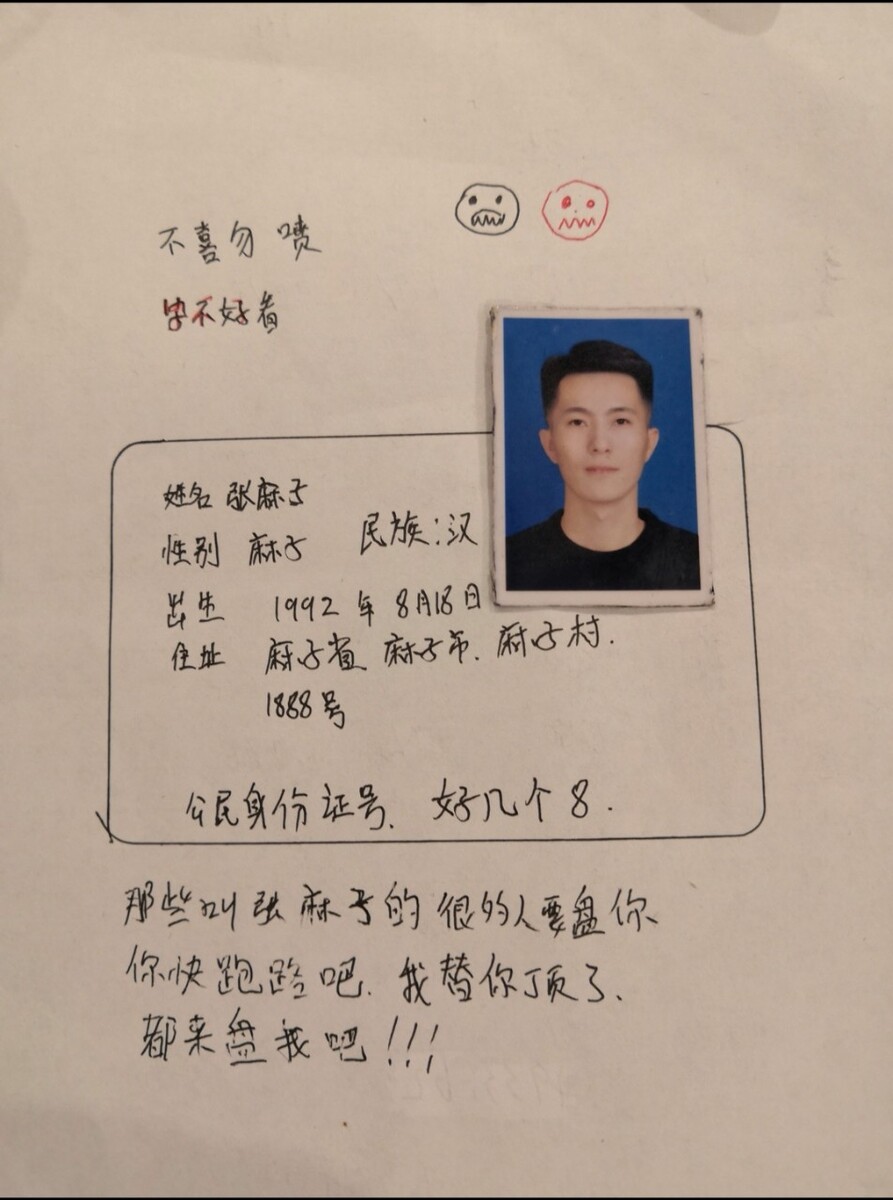 不喜勿喷
字不好看
姓名 张麻子
性别 麻子 民族:汉
出生 1992年8月18日
住址 麻子省 麻子市、麻子村.
1888号
公民身份证号、好几个8.
那些叫张麻子的很多人要盘你
你快跑路吧.我替你顶了、
都来盘我吧!!!